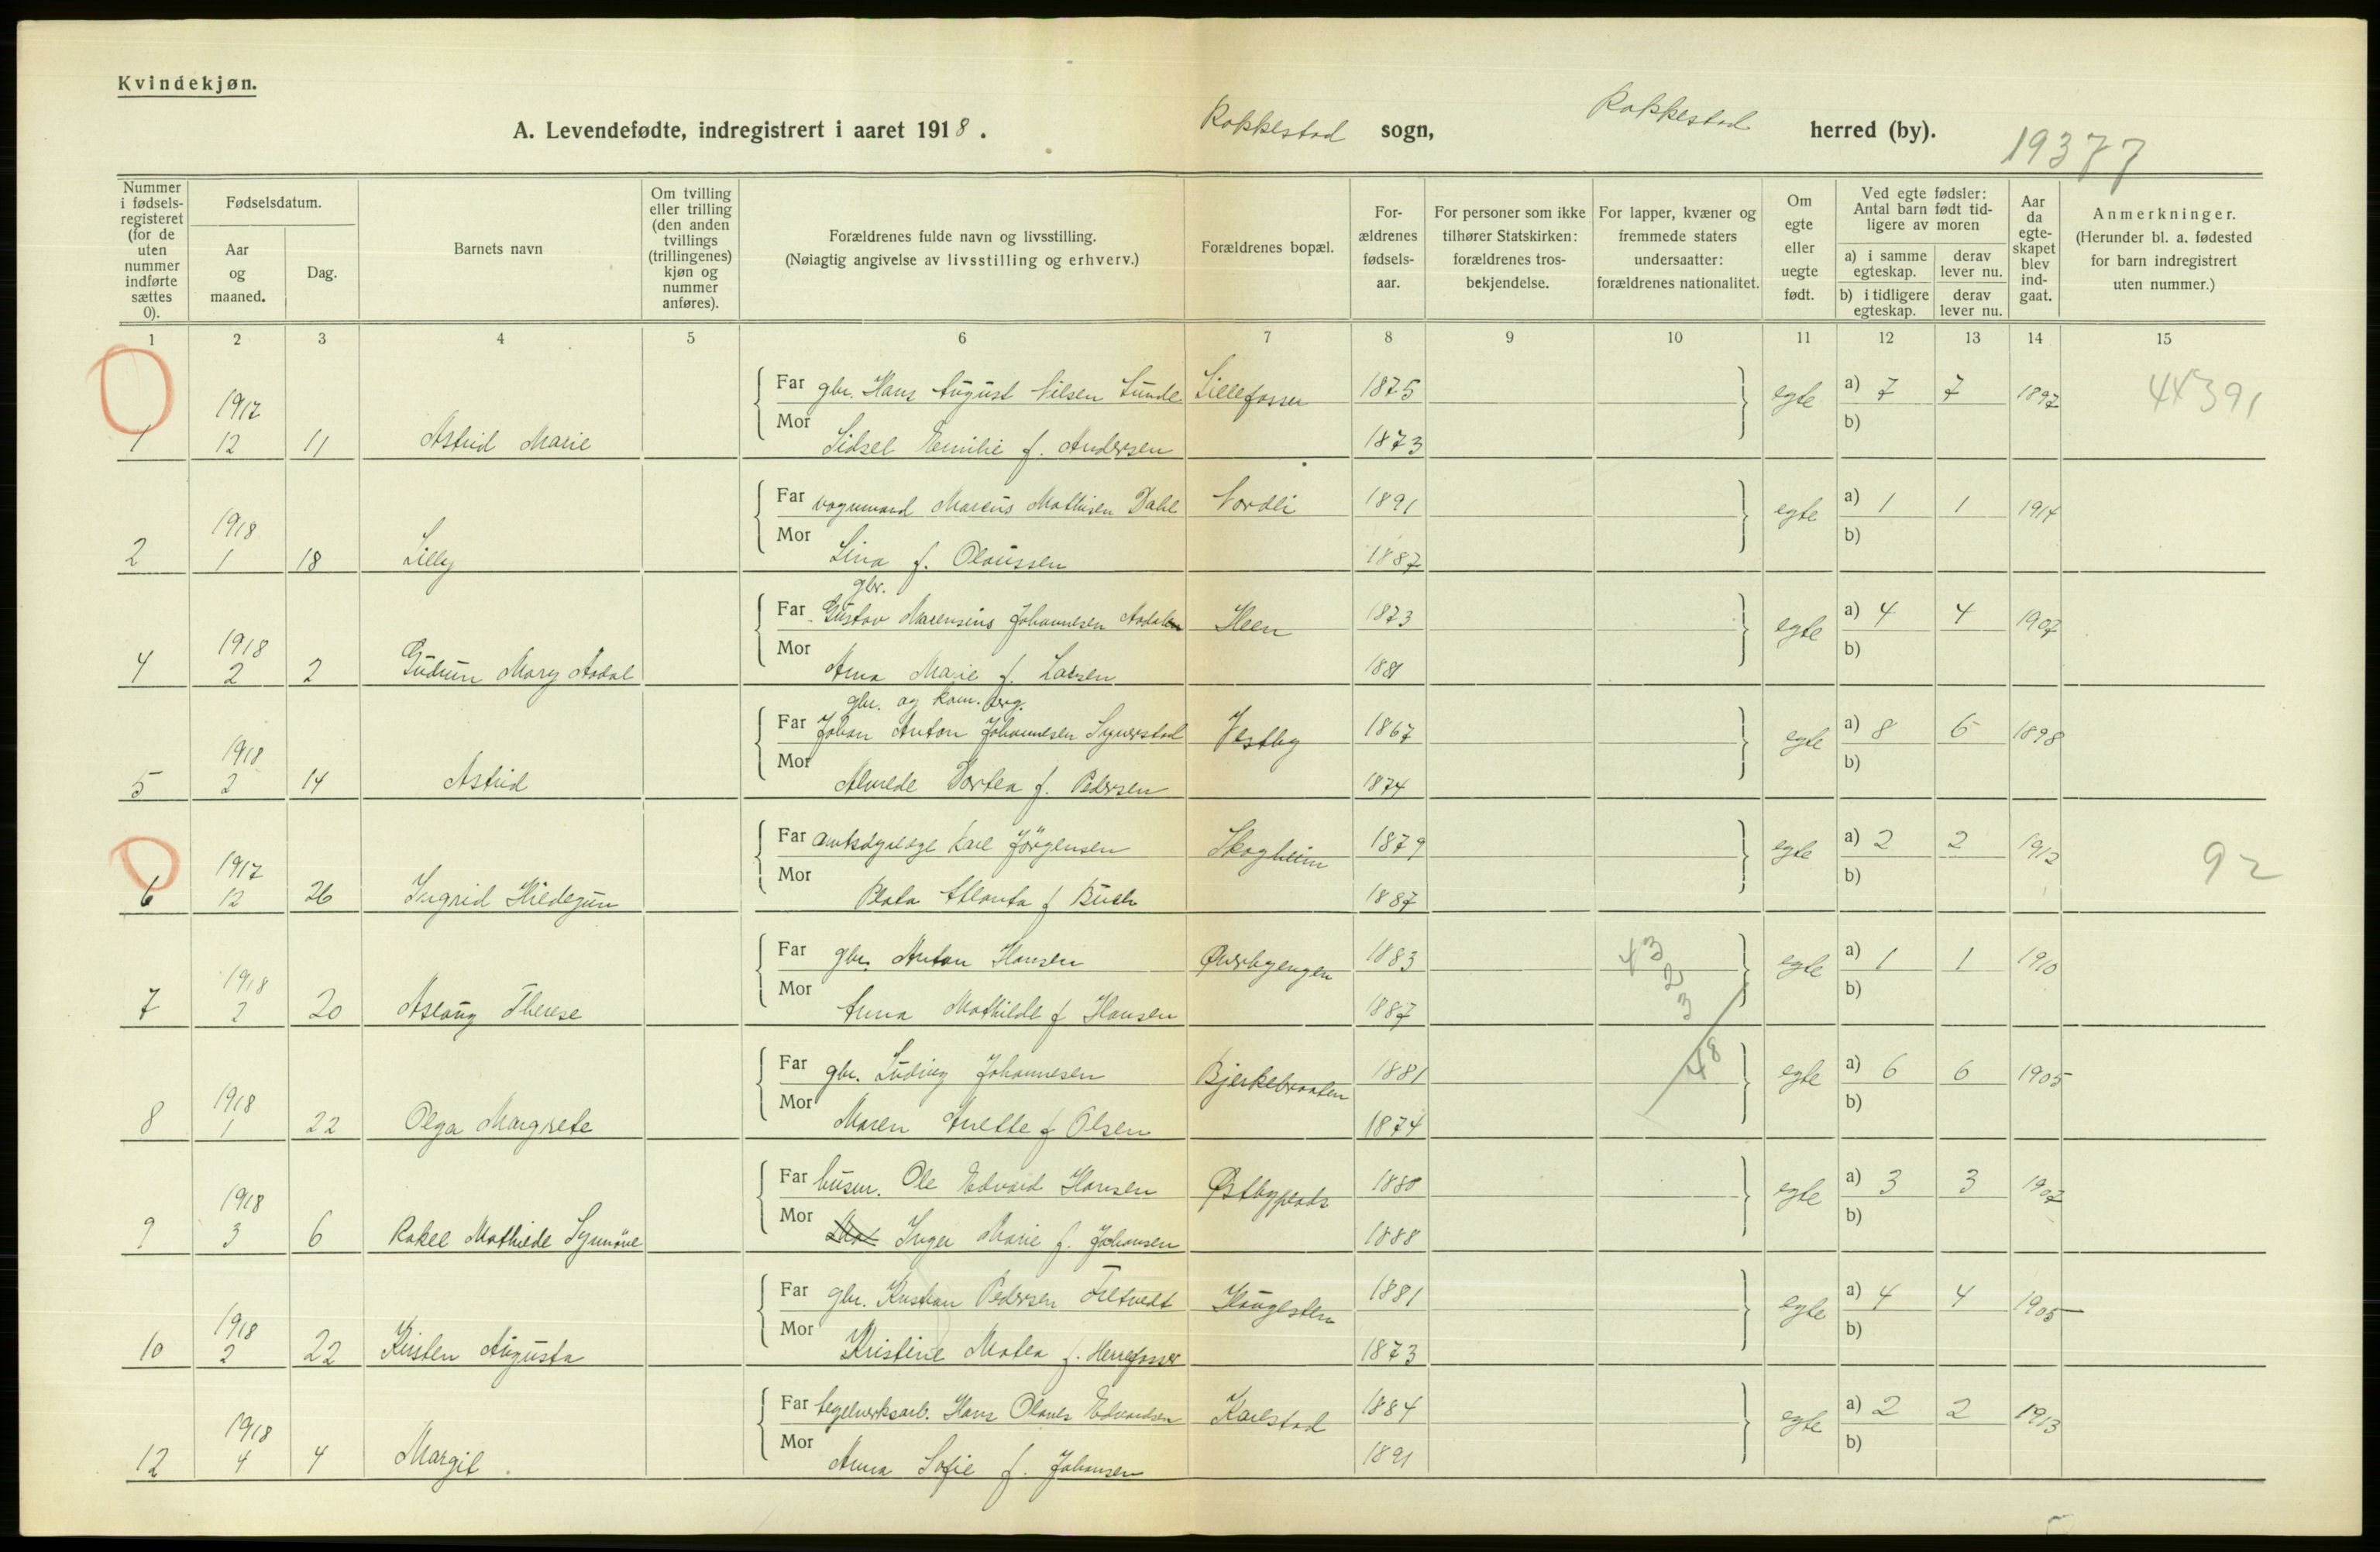 Kvindekjøn.
A. Levendefødte, indregistrert i aaret 1918. Rakkestad sogn, Rakkestad herred (by).
19377
Nummer i fødselsregisteret (for de uten nummer indførte sættes 0).
Fødselsdatum.
Aar og maaned.
Dag.
Barnets navn
Om tvilling eller trilling (den anden tvillings (trillingenes) kjøn og nummer anføres).
Forældrenes fulde navn og livsstilling.
(Nøiagtig angivelse av livsstilling og erhverv.)
Forældrenes bopæl.
Forældrenes fødselsaar.
For personer som ikke tilhører Statskirken: forældrenes trosbekjendelse.
For lapper, kvæner og fremmede staters undersaatter: forældrenes nationalitet.
Om egte eller uegte født.
Ved egte fødsler: Antal barn født tidligere av moren
a) i samme egteskap.
derav lever nu.
b) i tidligere egteskap.
derav lever nu.
Aar da egteskapet blev indgaat.
Anmerkninger.
(Herunder bl. a. fødested for barn indregistrert uten nummer.)
1 2 3 4 5 6 7 8 9 10 11 12 13 14 15
1 1917 12 11 Astrid Marie
Far gbr. Hans August Nilsen Lunde Lillefosser 1875 egte a) 7 7 1897 44391
Mor Sidsel Emilie f. Andersen 1873 b)
2 1918 1 18 Lilly
Far vognmand Marius Mathisen Dahl Nordli 1891 egte a) 1 1 1914
Mor Lina f. Olaussen 1887 b)
gbr.
4 1918 2 2 Gudrun Mary Aadal
Far Gustav Marensius Johannesen Aadalen Heen 1873 egte a) 4 4 1907
Mor Anna Marie f. Larsen 1881 b)
gbr. og kom.
5 1918 2 14 Astrid
Far Johan Anton Johannesen Vestby 1867 egte a) 8 6 1898
Mor Dortea f. Pedersen 1874 b)
6 1917 12 26 Ingrid Hildegun
Far amtsdyrlæge Karl Jörgensen Skogheim 1879 egte a) 2 2 1912 92
Mor f Buch 1887 b)
7 1918 2 20 Aslaug Therese
Far gbr. Anton Hansen 1883 43 2 3 egte a) 1 1 1910
Mor Anna Mathilde f Hansen 1887 b)
8 1918 1 22 Olga Margrete
Far gbr. Ludvig Johannesen Bjerkebraaten 1881 48 egte a) 6 6 1905
Mor Maren Anette f Olsen 1874 b)
9 1918 3 6 Rakel Mathilde Synnöve
Far husm. Ole Edvard Hansen Østbyplads 1880 egte a) 3 3 1907
Mor Inger Marie f. Johansen 1888 b)
10 1918 2 22 Kirsten Augusta
Far gbr. Kristian Pedersen Haugesten 1881 egte a) 4 4 1905
Mor Kristine Matea f. Herrefosser 1873 b)
12 1918 4 4 Margit.
Far teglverksarb. Hans Olaves Edvardsen Karlstad 1884 egte a) 2 2 1913
Mor Anna Sofie f. Johansen 1891 b)